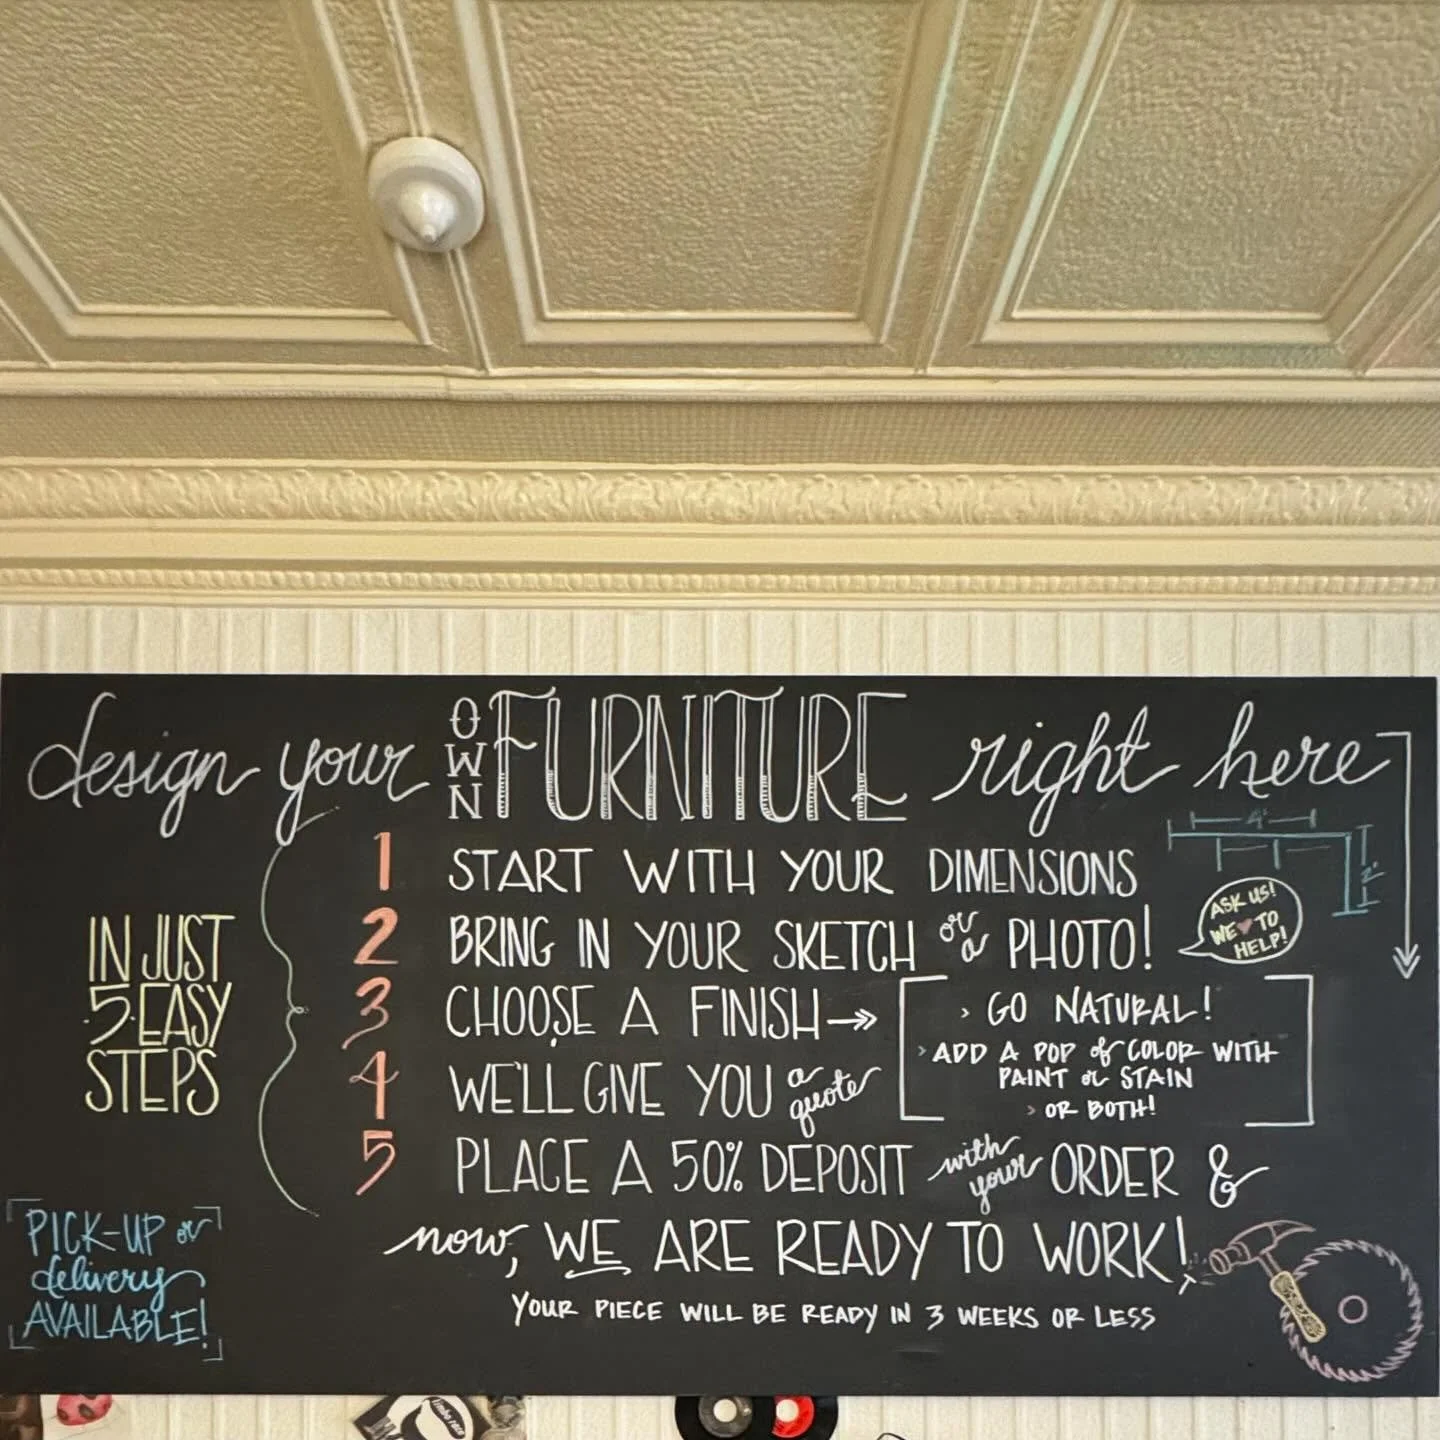 design your OWN FURNITURE right here
IN JUST
5 EASY
STEPS
1 START WITH YOUR DIMENSIONS
2 BRING IN YOUR SKETCH or a PHOTO!
3 CHOOSE A FINISH
4 WE'LL GIVE YOU a quote
5 PLACE A 50% DEPOSIT with your ORDER &
now, WE ARE READY TO WORK!
YOUR PIECE WILL BE READY IN 3 WEEKS OR LESS
4'
2'
ASK US!
WE ♥ TO
HELP!
› GO NATURAL!
› ADD A POP of COLOR WITH
PAINT or STAIN
› OR BOTH!
PICK-UP or
delivery
AVAILABLE!